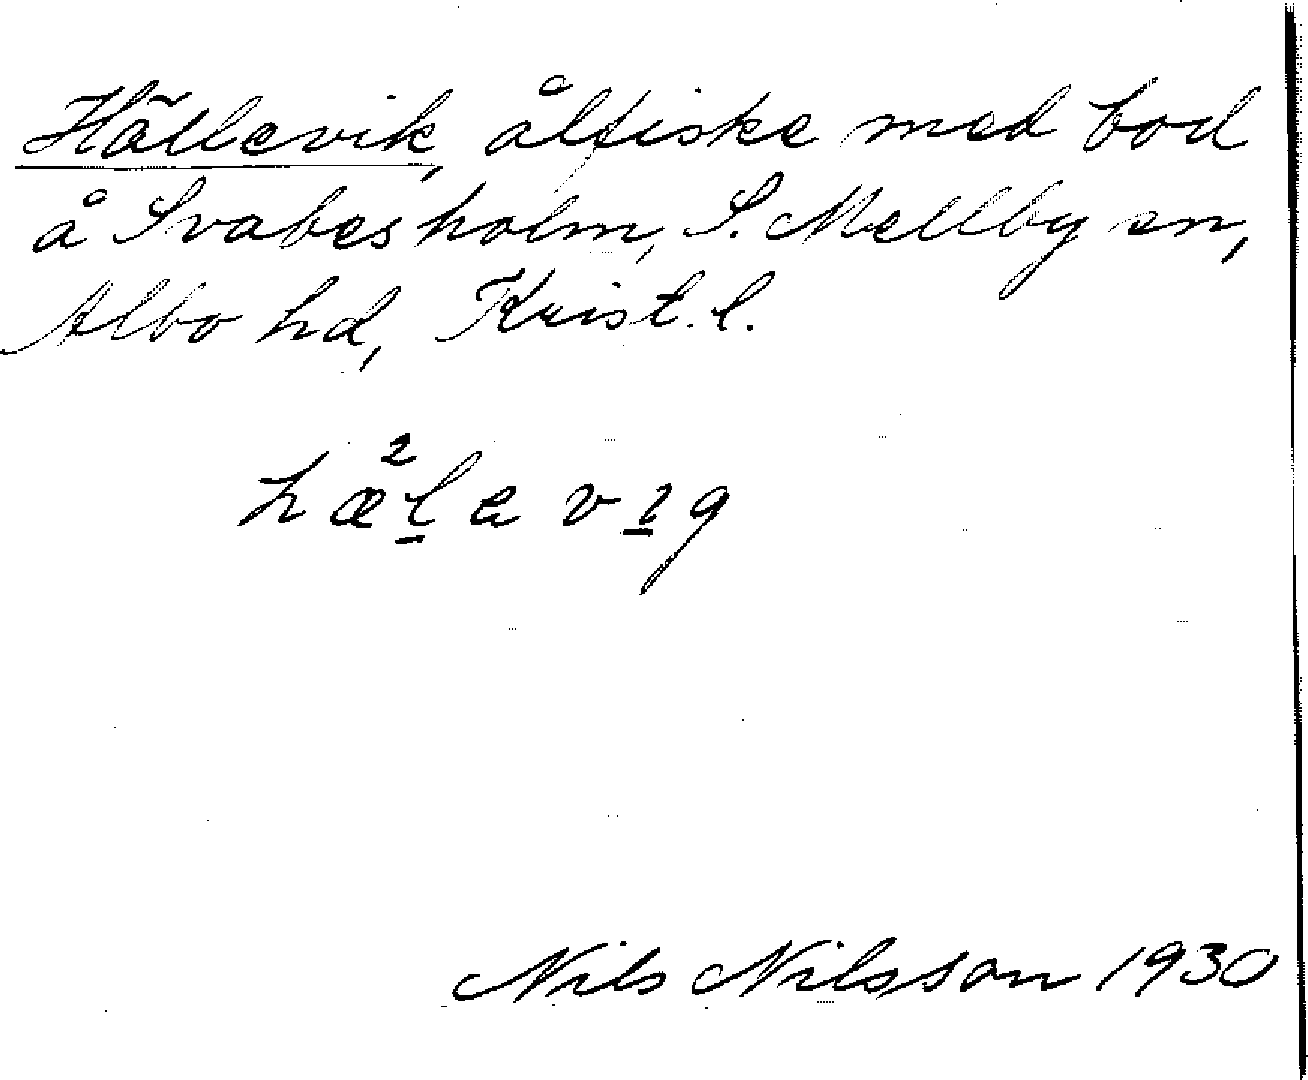 Hällevik, ålfiske med bod
å Svabesholm, S. Mellby sn,
Albo hd, Krist. l.
hæ²l̲a vı̲g
Nils Nilsson 1930